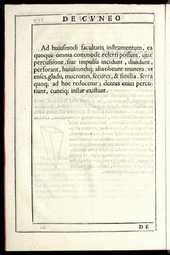 DE CVNEO
Ad huiusmodi facultatis instrumentum, ea
quoque omnia commode referri possunt, quæ
percussione, siue impulsu incidunt, diuidunt,
perforant, huiusmodiq; absoluunt munera. vt
enses, gladij, mucrones, secures, & similia. serra
quoq; ad hoc reducetur; dentes enim percu-
tiunt, cuneiq; instar existunt.
DE